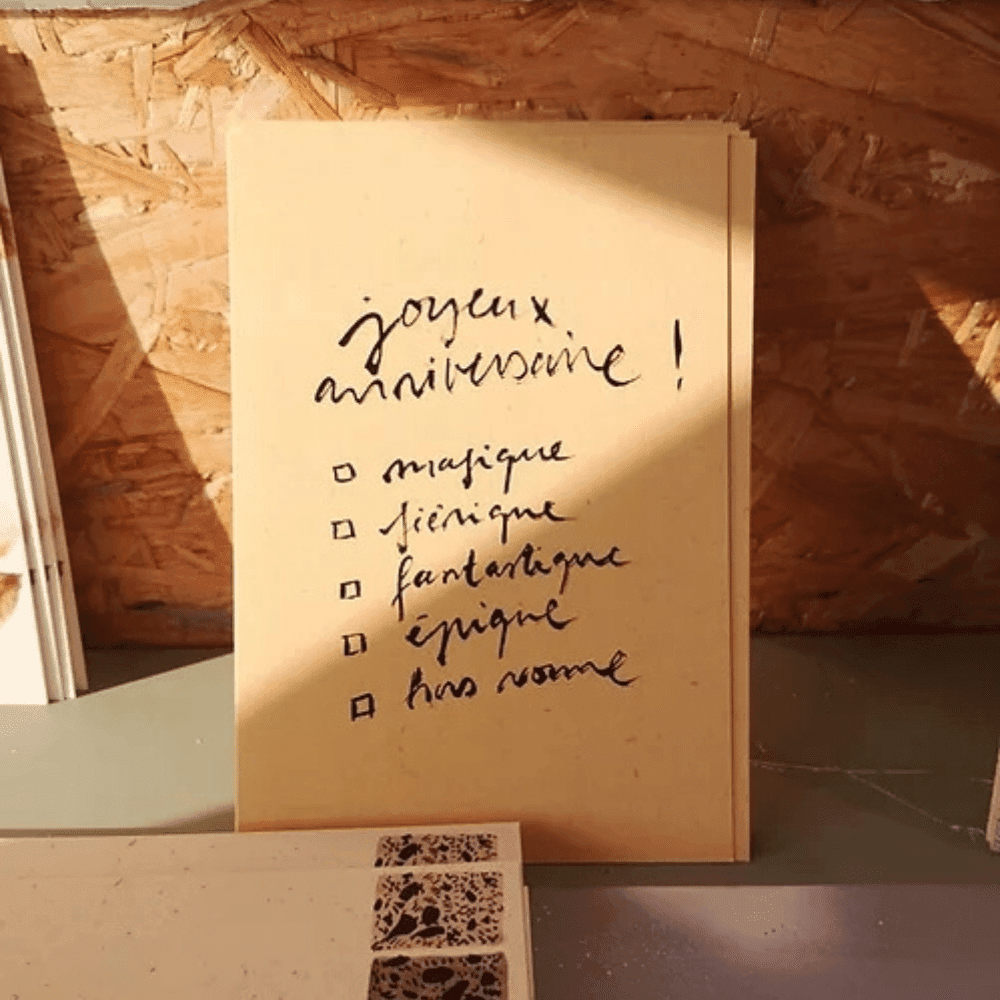 joyeux
anniversaire !
magique
féérique
fantastique
épique
hors norme